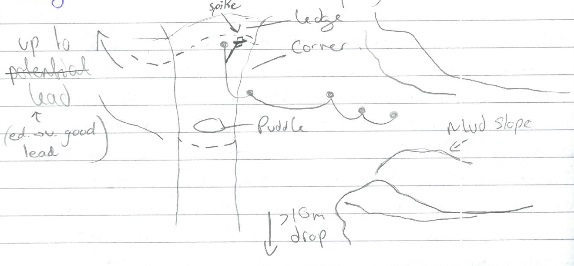 spike
ledge
up to
potential
Corner
lead
(ed. good
lead)
Puddle
Mud slope
>10m
drop